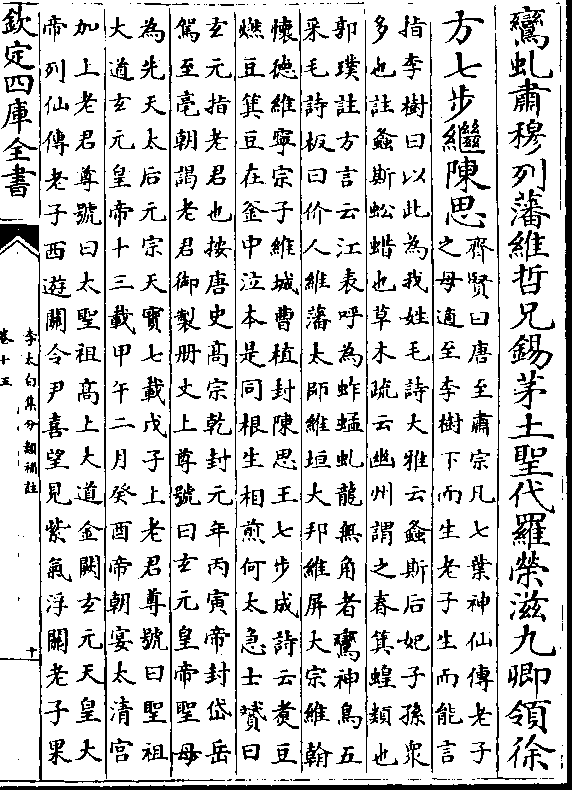 鸞虬肅穆列藩維哲兄錫茅土聖代羅榮滋九卿領徐
方七步繼陳思
齊賢曰唐至肅宗凡七葉神仙傳老子
之母適至李樹下而生老子生而能言
指李樹曰以此為我姓毛詩大雅云螽斯后妃子孫衆
多也註螽斯蚣蝑也草木疏云幽州謂之春箕蝗類也
郭璞註方言云江表呼為蚱蜢虬龍無角者鸞神鳥五
采毛詩板曰价人維藩太師維垣大邦維屏大宗維翰
懐德維寧宗子維城曹植封陳思王七步成詩云煑豆
燃豆箕豆在釜中泣本是同根生相煎何太急士贇曰
玄元指老君也按唐史高宗乾封元年丙寅帝封岱岳
駕至亳朝謁老君御製册文上尊號曰玄元皇帝聖母
為先天太后元宗天寳七載戊子上老君尊號曰聖祖
大道玄元皇帝十三載甲午二月癸酉帝朝宴太清宫
加上老君尊號曰太聖祖高上大道金闕玄元天皇大
帝列仙傳老子西遊關令尹喜望見紫氣浮關老子果
欽定四庫全書
李太白集分類補註
卷十五
十